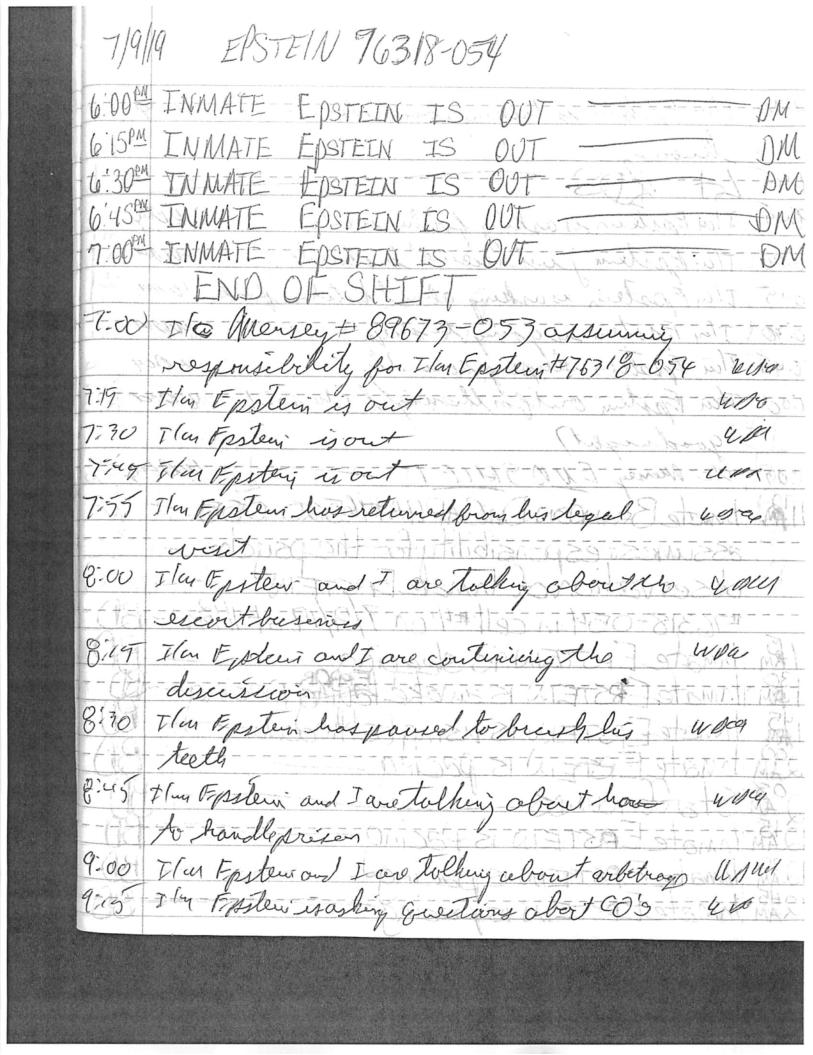 7/9/19 EPSTEIN 76318-054
6:00PM INMATE EPSTEIN IS OUT DM
6:15PM INMATE EPSTEIN IS OUT DM
6:30PM INMATE EPSTEIN IS OUT DM
6:45PM INMATE EPSTEIN IS OUT DM
7:00PM INMATE EPSTEIN IS OUT DM
END OF SHIFT
7:00 I/C # 89673-053 assuming
responsibility for I/m Epstein #76318-054
7:15 I/m Epstein is out
7:30 I/m Epstein is out
7:45 I/m Epstein is out
7:55 I/m Epstein has returned from his legal
visit
8:00 I/m Epstein and I are talking about the
escort business
8:15 I/m Epstein and I are continuing the
discussion
8:30 I/m Epstein has paused to brush his
teeth
8:45 I/m Epstein and I are talking about how
to handle prison
9:00 I/m Epstein and I are talking about arbetrage
9:15 I/m Epstein is asking questions abert CO's